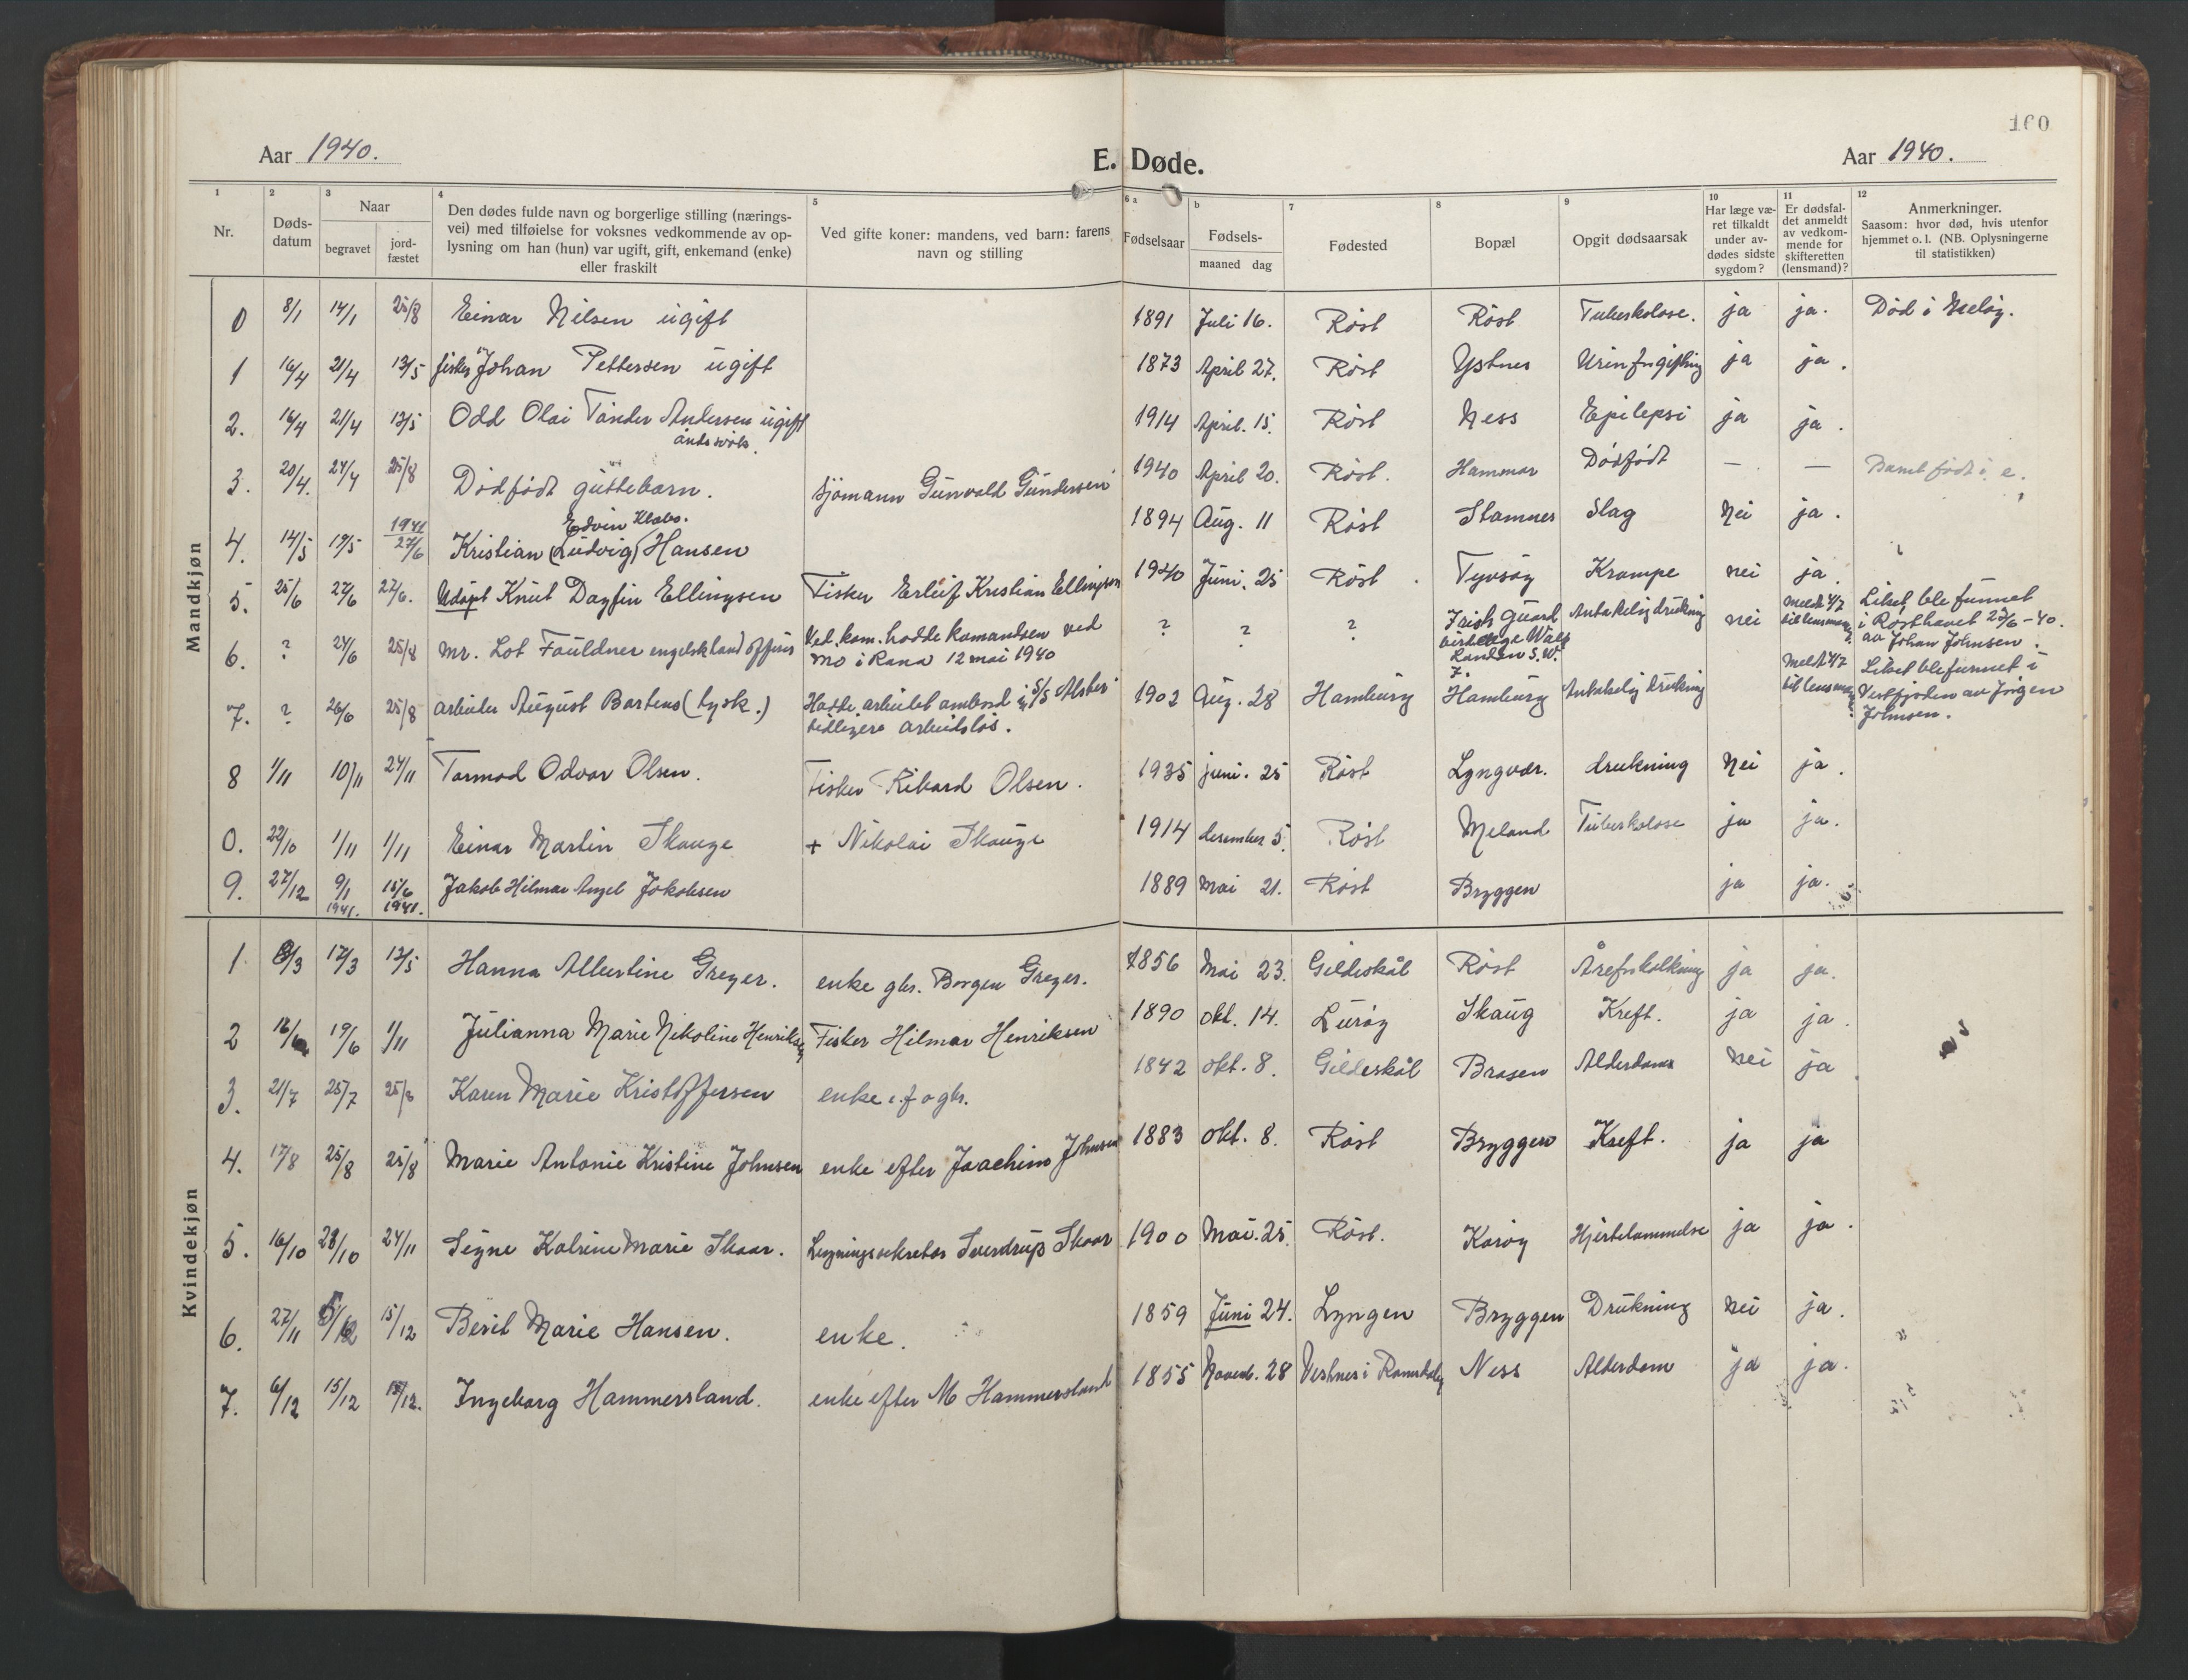 160
Aar 1940.
E. Døde.
Aar 1940.
1 2 3 4 5 6 a b 7 8 9 10 11 12
Nr.
Døds-
datum
Naar
begravet
jord-
fæstet
Den dødes fulde navn og borgerlige stilling (nærings-
vei) med tilføielse for voksnes vedkommende av op-
lysning om han (hun) var ugift, gift, enkemand (enke)
eller fraskilt
Ved gifte koner: mandens, ved barn: farens
navn og stilling
Fødselsaar
Fødsels-
maaned dag
Fødested
Bopæl
Opgit dødsaarsak
Har læge væ-
ret tilkaldt
under av-
dødes sidste
sygdom?
Er dødsfal-
det anmeldt
av vedkom-
mende for
skifteretten
(lensmand)?
Anmerkninger.
Saasom: hvor død, hvis utenfor
hjemmet o. l. (NB. Oplysningerne
til statistikken)
Mandkjøn
0 8/1 14/1 25/8 Einar Nilsen ugift 1891 Juli 16. Røst Røst Tuberkolose. ja ja. Død i Meløy.
1 16/4 21/4 13/5 fisker Johan Pettersen ugift 1873 April 27. Røst Ystnes Urinforgiftning ja ja.
2. 16/4 21/4 13/5 Odd Olai Tander Andersen ugift 1914 April. 15. Røst Ness Epilepsi ja ja.
åndssvak.
3. 20/4. 24/4 25/8 Dødfødt guttebarn. Sjømann Gunvald Gundersen 1940 April 20. Røst. Hammar Dødfødt — — Barnet født i. e.
Edvin Klabo.
4. 14/5 19/5 1941 27/6 Kristian (Ludvig) Hansen 1894 Aug. 11 Røst Stamnes Slag Nei ja.
5. 25/6 27/6 27/6. Udøpt Knut Dagfin Ellingsen Fisker Erleif Kristian Ellingsen 1940 Juni. 25 Røst. Tyvsøy Krampe nei ja.
6. ? 24/6 25/8 Mr. Lot Fouldner engelsk land offiser Vel. kom. hadde komandoen ved
Mo i Rana 12 mai 1940
? ? ? Irish Guard
London S. W.
Antakelig drukning nei Meldt 4/7
til lensmann
Liket ble funnet
i Røsthavet 23/6 - 40.
av Johan Johnsen.
7. ? 26/6 25/8 arbeider August Bartens (tysk.) Hadde arbeidet ombord i S/S Alster
tidligere arbeidsløs.
1902 Aug. 28 Hamburg Hamburg Antakelig Drukning Meldt 4/7
til lensmann
Liket ble funnet i
Vestfjorden av Jørgen
Johnsen.
8 1/11 10/11 24/11 Tormod Odvar Olsen. Fisker Rikard Olsen. 1935 juni. 25 Røst Lyngvær. drukning Nei ja.
0. 22/10 1/11 1/11 Einar Martin Skauge + Nikolai Skauge 1914 desember 5. Røst Meland Tuberkolose ja ja.
9. 27/12 9/1 1941. 15/6 1941. Jakob Hilmar Angel Jakobsen 1889 Mai 21. Røst Bryggen ja ja.
Kvindekjøn
1 8/3 17/3 13/5 Hanna Albertine Greger. enke gbr. Borgen Greger. 1856 Mai 23. Gildeskål Røst Åreforkalkning ja ja.
2 19/6 1/11 Julianna Marie Nikoline Henriksen Fisker Hilmar Henriksen 1890 okt. 14. Lurøy Skaug Kreft. ja ja.
3. 21/7 25/7 25/8 Karen Marie Kristoffersen enke e. f o gbr. 1842 okt. 8. Gildeskål Brasen Alderdoms Nei ja
4. 17/8 25/8 25/8 Marie Antonie Kristine Johnsen enke efter Joachim Johnsen 1883 okt. 8. Røst Bryggen Kreft. ja ja
5. 16/10 23/10 24/11 Signe Katrine Marie Skaar. Ligningssekretær Sverdrup Skaar 1900 Mai. 25. Røst. Karøy Hjertelammelse ja ja.
6. 27/11 15/12 Berit Marie Hansen. enke. 1859 Juni 24. Lyngen Bryggen Drukning Nei ja.
7. 6/12 15/12 15/12. Ingeborg Hammersland. enke efter M Hammersland 1855 Novemb. 28 Vestnes i Romsdalen Ness Alderdom ja ja.